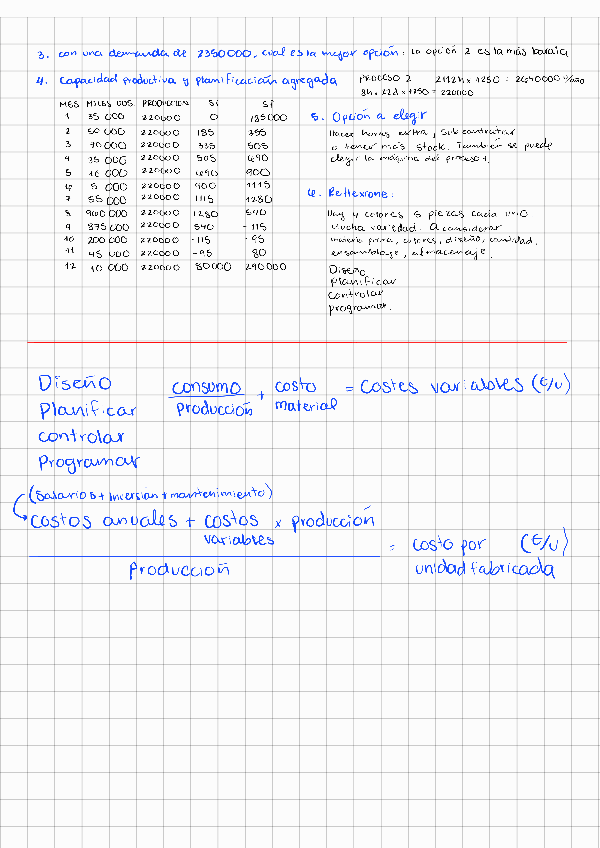 3. con una demanda de 2350000, cual es la mejor opción: La opción 2 es la más barata
4. Capacidad productiva y planificación agregada
PROCESO 2 2112h x 1250 = 2640000 u/año
8h x 22d x 1250 = 220000
MES MILES UDS. PRODUCCION Si Sf
1 35 000 220000 0 185000
2 50 000 220000 185 355
3 70 000 220000 335 505
4 35 000 220000 505 690
5 10 000 220000 690 900
6 5 000 220000 900 1115
7 55 000 220000 1115 1280
8 900 000 220000 1280 540
9 875 000 220000 540 -115
10 200 000 220000 -115 -95
11 45 000 220000 -95 80
12 10 000 220000 80000 290000
5. Opción a elegir
Hacer horas extra, subcontratar
o tener más stock. También se puede
elegir la máquina del proceso 1.
6. Reflexione:
Hay 4 colores 5 piezas cada uno
Mucha variedad. A considerar
materia prima, colores, diseño, cantidad,
ensamblaje, almacenaje.
Diseño
Planificar
controlar
programar.
Diseño
Planificar
controlar
Programar
consumo + costo = costes variables (€/u)
Producción material
(Salarios + Inversión + mantenimiento)
costos anuales + costos x producción
variables
= costo por (€/u)
Producción unidad fabricada